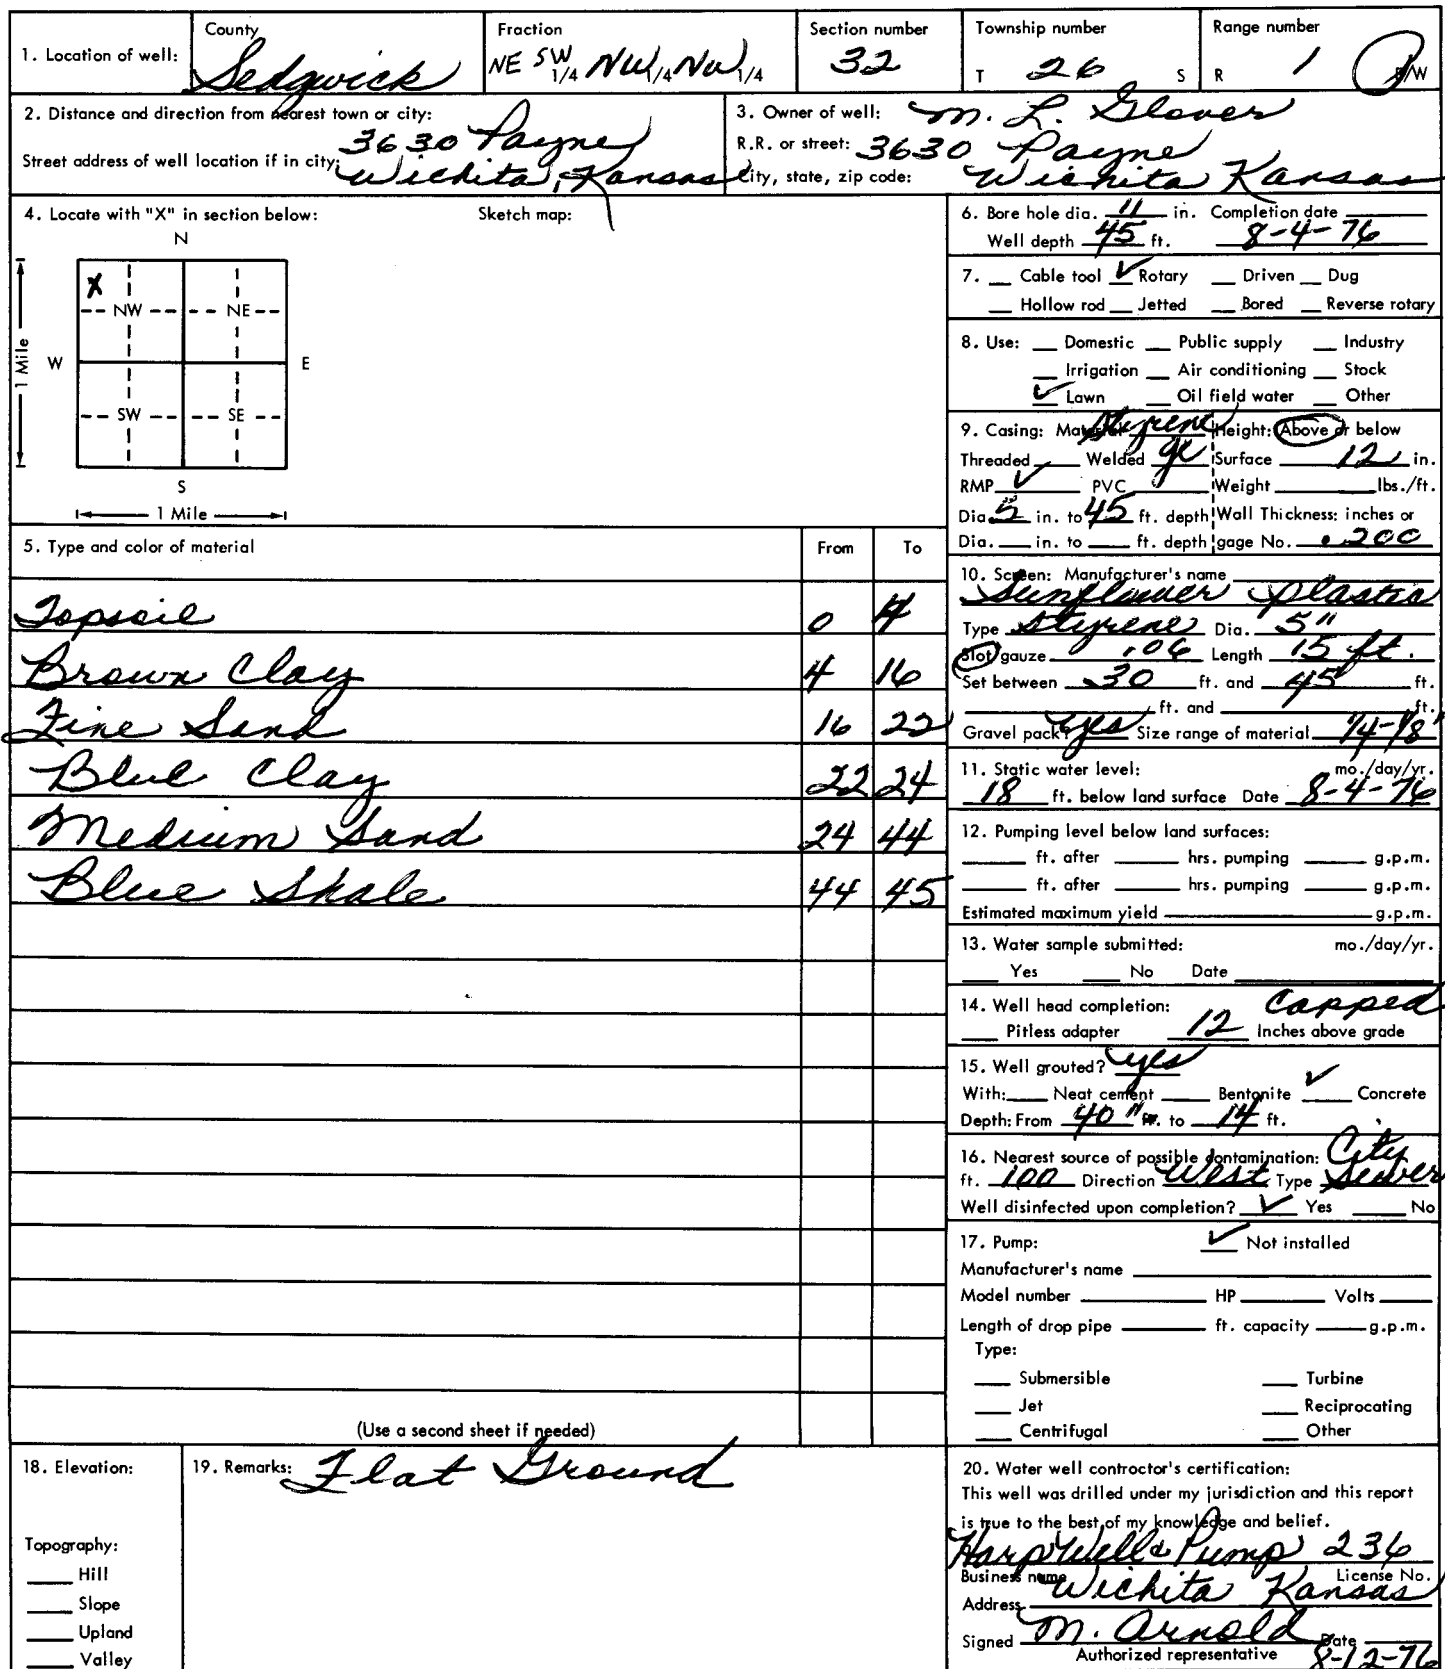 1. Location of well:
County
Sedgwick
Fraction
NE SW 1/4 NW 1/4 NW 1/4
Section number
32
Township number
T 26 S
Range number
R 1 E/W
2. Distance and direction from nearest town or city:
3630 Payne
Street address of well location if in city:
Wichita, Kansas
3. Owner of well: M. L. Glover
R.R. or street: 3630 Payne
City, state, zip code: Wichita Kansas
4. Locate with "X" in section below:
Sketch map:
N
X
NW NE
W E
1 Mile
SW SE
S
1 Mile
5. Type and color of material From To
Topsoil 0 4
Brown Clay 4 16
Fine Sand 16 22
Blue Clay 22 24
Medium Sand 24 44
Blue Shale 44 45
(Use a second sheet if needed)
6. Bore hole dia. 11 in. Completion date
Well depth 45 ft. 8-4-76
7. Cable tool ✓ Rotary Driven Dug
Hollow rod Jetted Bored Reverse rotary
8. Use: Domestic Public supply Industry
Irrigation Air conditioning Stock
✓ Lawn Oil field water Other
9. Casing: Material styrene Height: Above or below
Threaded Welded Surface 12 in.
RMP ✓ PVC Weight lbs./ft.
Dia. 5 in. to 45 ft. depth Wall Thickness: inches or
Dia. in. to ft. depth gage No. .200
10. Screen: Manufacturer's name
Sunflower Plastic
Type Styrene Dia. 5"
Slot gauze .06 Length 15 ft.
Set between 30 ft. and 45 ft.
ft. and ft.
Gravel pack? yes Size range of material 1/4-1/8"
11. Static water level: mo./day/yr.
18 ft. below land surface Date 8-4-76
12. Pumping level below land surfaces:
ft. after hrs. pumping g.p.m.
ft. after hrs. pumping g.p.m.
Estimated maximum yield g.p.m.
13. Water sample submitted: mo./day/yr.
Yes No Date
14. Well head completion: Capped
Pitless adapter 12 Inches above grade
15. Well grouted? yes
With: Neat cement Bentonite ✓ Concrete
Depth: From 40" to 14 ft.
16. Nearest source of possible contamination: City
ft. 100 Direction West Type Sewer
Well disinfected upon completion? ✓ Yes No
17. Pump: ✓ Not installed
Manufacturer's name
Model number HP Volts
Length of drop pipe ft. capacity g.p.m.
Type:
Submersible Turbine
Jet Reciprocating
Centrifugal Other
18. Elevation:
Topography:
Hill
Slope
Upland
Valley
19. Remarks: Flat Ground
20. Water well contractor's certification:
This well was drilled under my jurisdiction and this report
is true to the best of my knowledge and belief.
Harp Well & Pump 236
Business name License No.
Address Wichita Kansas
Signed M. Arnold Date
Authorized representative 8-12-76